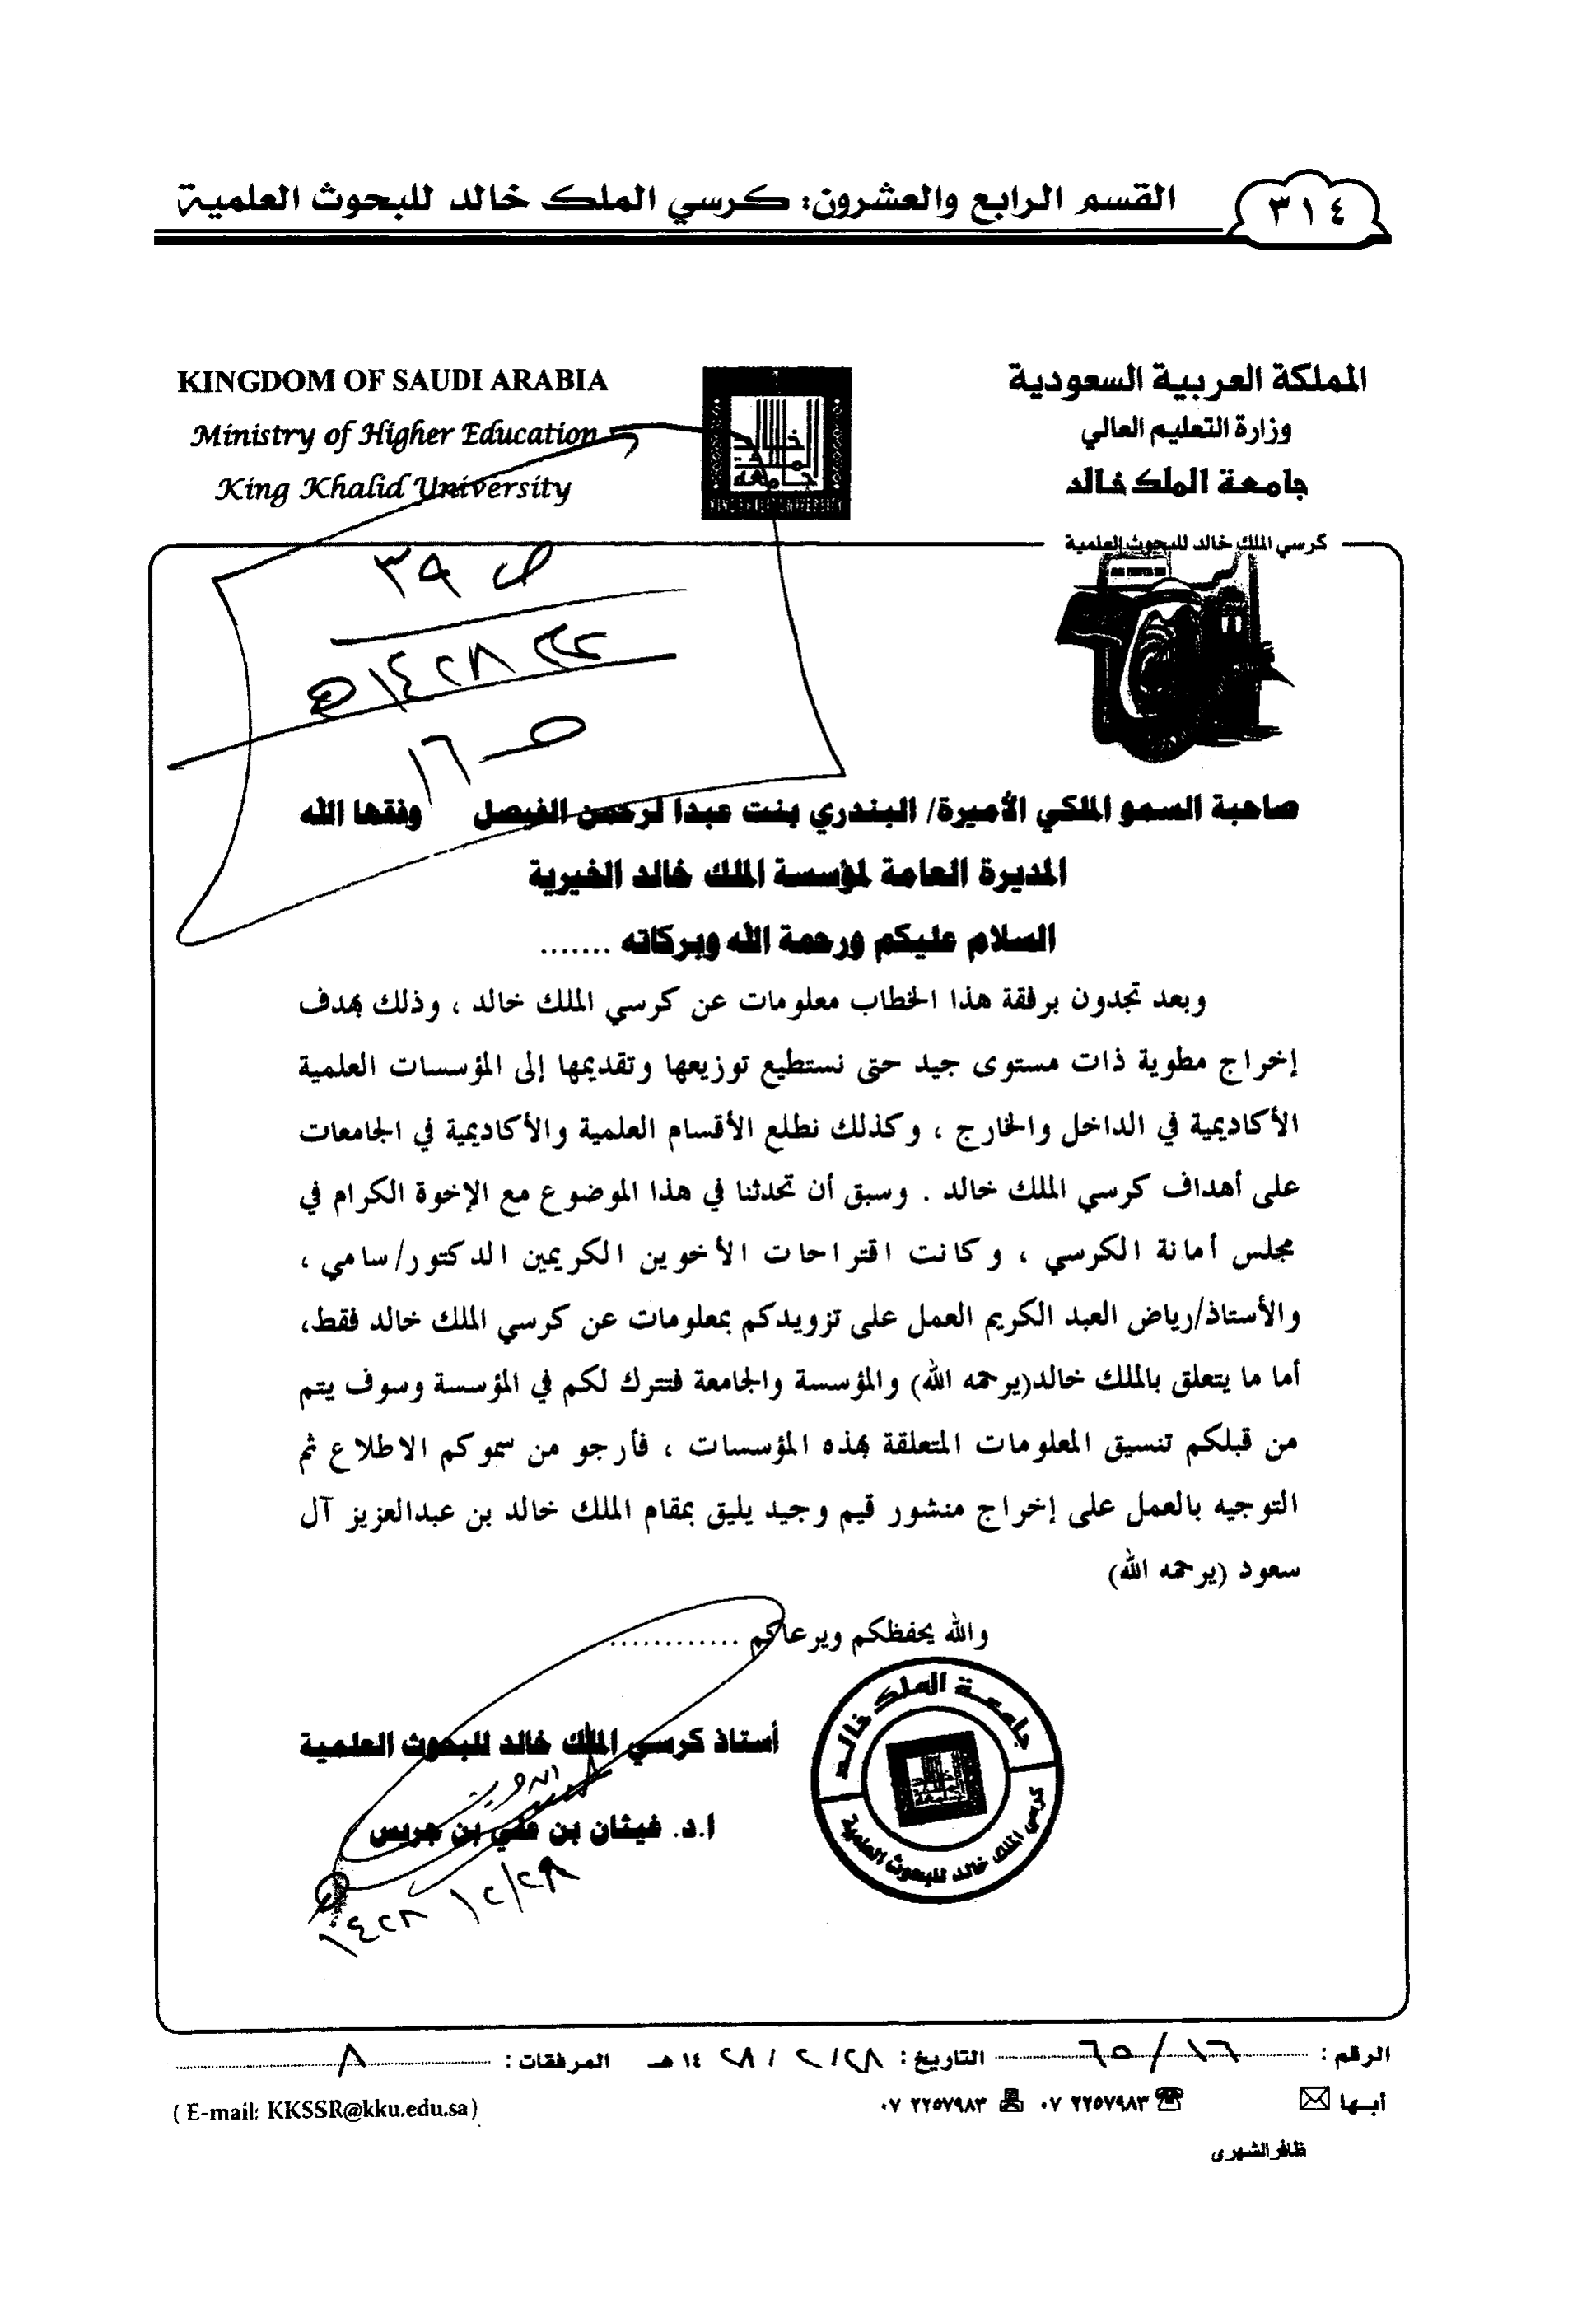 ٣١٤
القسم الرابع والعشرون: كرسي الملك خالد للبحوث العلمية
المملكة العربية السعودية
وزارة التعليم العالي
جامعة الملك خالد
KINGDOM OF SAUDI ARABIA
Ministry of Higher Education
King Khalid University
كرسي الملك خالد للبحوث العلمية
ص ٣٩
١٤٢٨هـ
ص ١٦
صاحبة السمو الملكي الأميرة/ البندري بنت عبدا لرحمن الفيصل وفقها الله
المديرة العامة لمؤسسة الملك خالد الخيرية
السلام عليكم ورحمة الله وبركاته .......
وبعد تجدون برفقة هذا الخطاب معلومات عن كرسي الملك خالد ، وذلك بهدف
إخراج مطوية ذات مستوى جيد حتى نستطيع توزيعها وتقديمها إلى المؤسسات العلمية
الأكاديمية في الداخل والخارج ، وكذلك نطلع الأقسام العلمية والأكاديمية في الجامعات
على أهداف كرسي الملك خالد . وسبق أن تحدثنا في هذا الموضوع مع الإخوة الكرام في
مجلس أمانة الكرسي ، وكانت اقتراحات الأخوين الكريمين الدكتور/سامي ،
والأستاذ/رياض العبد الكريم العمل على تزويدكم بمعلومات عن كرسي الملك خالد فقط،
أما ما يتعلق بالملك خالد(يرحمه الله) والمؤسسة والجامعة فتترك لكم في المؤسسة وسوف يتم
من قبلكم تنسيق المعلومات المتعلقة بهذه المؤسسات ، فأرجو من سموكم الاطلاع ثم
التوجيه بالعمل على إخراج منشور قيم وجيد يليق بمقام الملك خالد بن عبدالعزيز آل
سعود (يرحمه الله)
والله يحفظكم ويرعاكم ............
أستاذ كرسي الملك خالد للبحوث العلمية
ا.د. غيثان بن علي بن جريس
١٤٢٨/٢/٢٨
جامعة الملك خالد
كرسي الملك خالد للبحوث العلمية
الرقم : ٦٥/١٦ التاريخ : ٢٨/ ٢ / ٢٨ ١٤ هـ المرفقات : ٨
أبها ٠٧ ٢٢٥٧٩٨٣ ٠٧ ٢٢٥٧٩٨٣ ( E-mail: KKSSR@kku.edu.sa)
ظافر الشهري